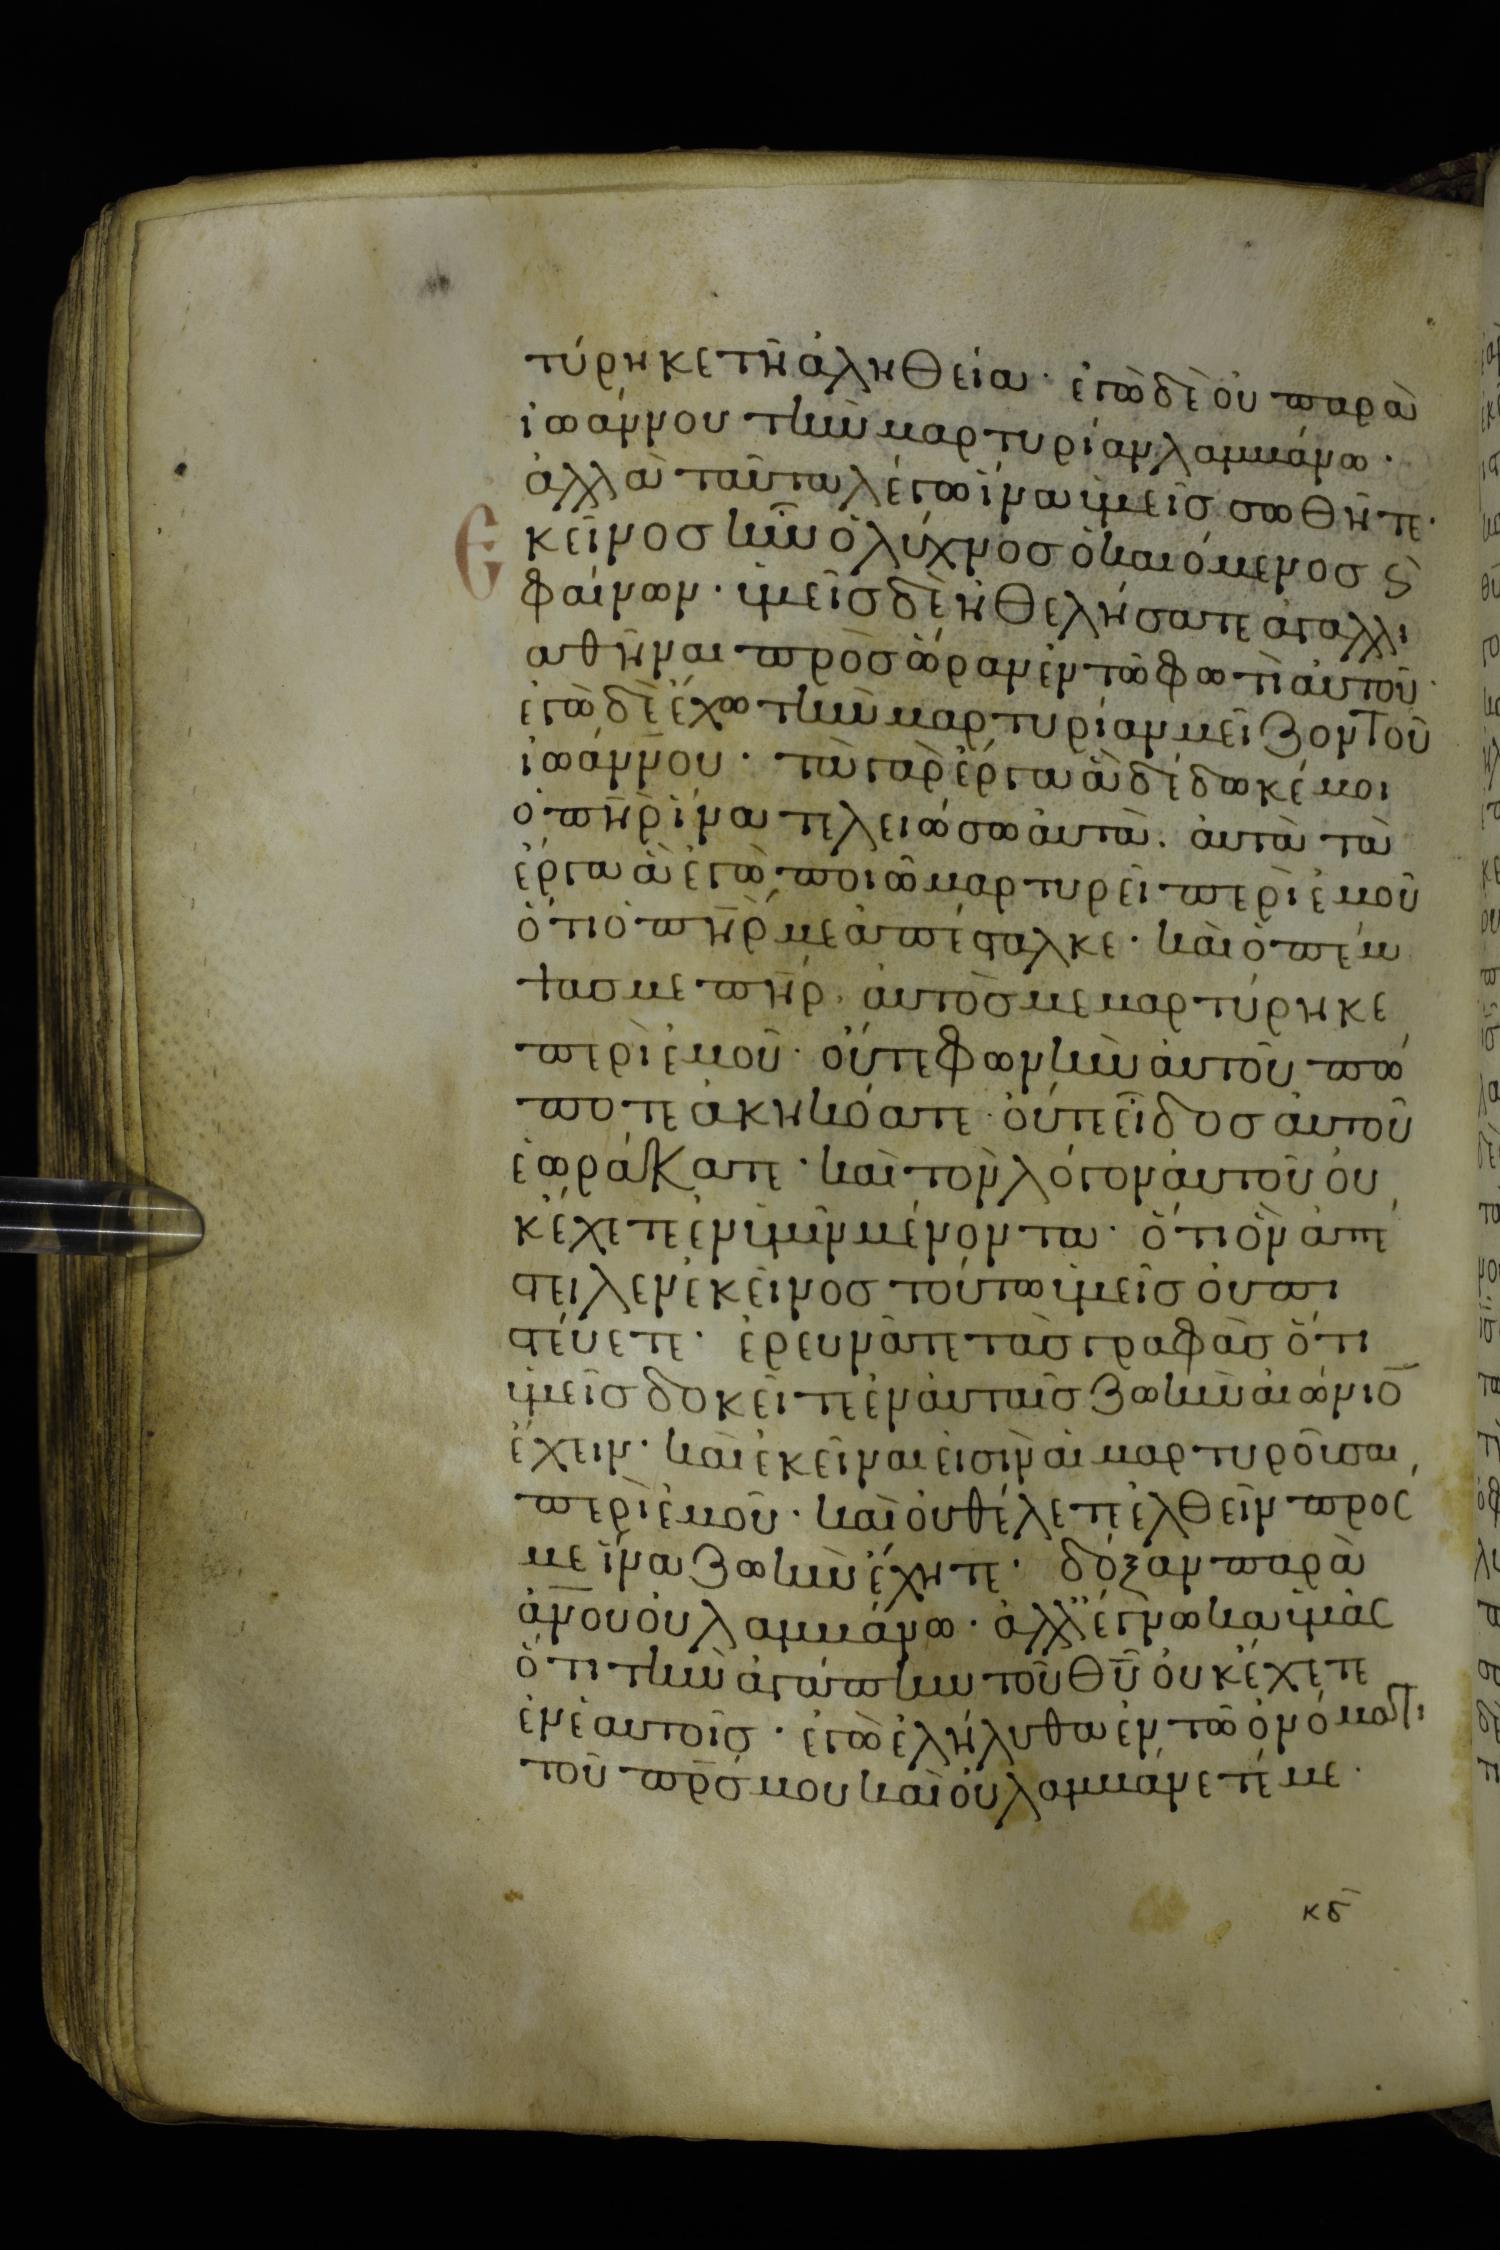 τύρηκε τῆ ἀληθεία· ἐγὼ δὲ οὐ παρὰ
ἰωάννου τὴν μαρτυρίαν λαμβάνω·
ἀλλὰ ταῦτα λέγω ἵνα ὑμεῖσ σωθῆτε·
Εκεῖνοσ ἦν ὁ λύχνοσ ὁ καιόμενοσ ϗ
φαίνων· ὑμεῖσ δὲ ἠθελήσατε ἀγαλλι
αθῆναι πρὸσ ὥραν ἐν τῶ φωτὶ αὐτοῦ·
ἐγὼ δὲ ἔχω τὴν μαρτυρίαν μείζον τοῦ
ἰωάννου· τὰ γὰρ ἔργα ἃ δέδωκέ μοι
ὁ πη̅ρ ἵνα τελειώσω αὐτὰ· αὐτὰ τὰ
ἔργα ἃ ἐγὼ ποιῶ μαρτυρεῖ περὶ ἐμοῦ
ὅτι ὁ πη̅ρ με ἀπέσταλκε· καὶ ὁ πέμ
ψασ με πη̅ρ· αὐτὸσ μεμαρτύρηκε
περὶ ἐμοῦ· οὔτε φωνὴν αὐτοῦ πώ
ποτε ἀκηκόατε· οὔτε εἶδοσ αὐτοῦ
ἑωράκατε· καὶ τὸν λόγον αὐτοῦ οὐ
κ ἔχετε ἐν ὑμῖν μένοντα· ὅτι ὃν ἀπέ
στειλεν ἐκεῖνοσ τούτω ὑμεῖσ οὐ πι
στεύετε· ἐρευνᾶτε τὰσ γραφὰσ ὅτι
ὑμεῖσ δοκεῖτε ἐν αὐταῖσ ζωὴν αἰώνιο̅
ἔχειν· καὶ ἐκεῖναι εἰσὶν αἱ μαρτυροῦσαι
περὶ ἐμοῦ· καὶ οὐ θέλετε ἐλθεῖν πρός
με ἵνα ζωὴν ἔχητε· δόξαν παρὰ
α̅νου οὐ λαμβάνω· ἀλλ' ἔγνωκα ὑμᾶς
ὅτι τὴν ἀγάπην τοῦ θ̅υ οὐκ ἔχετε
ἐν ἑαυτοῖσ· ἐγὼ ἐλήλυθα ἐν τῶ ὀνόματι
τοῦ π̅ρσ μου καὶ οὐ λαμβάνετέ με·
κδ̅